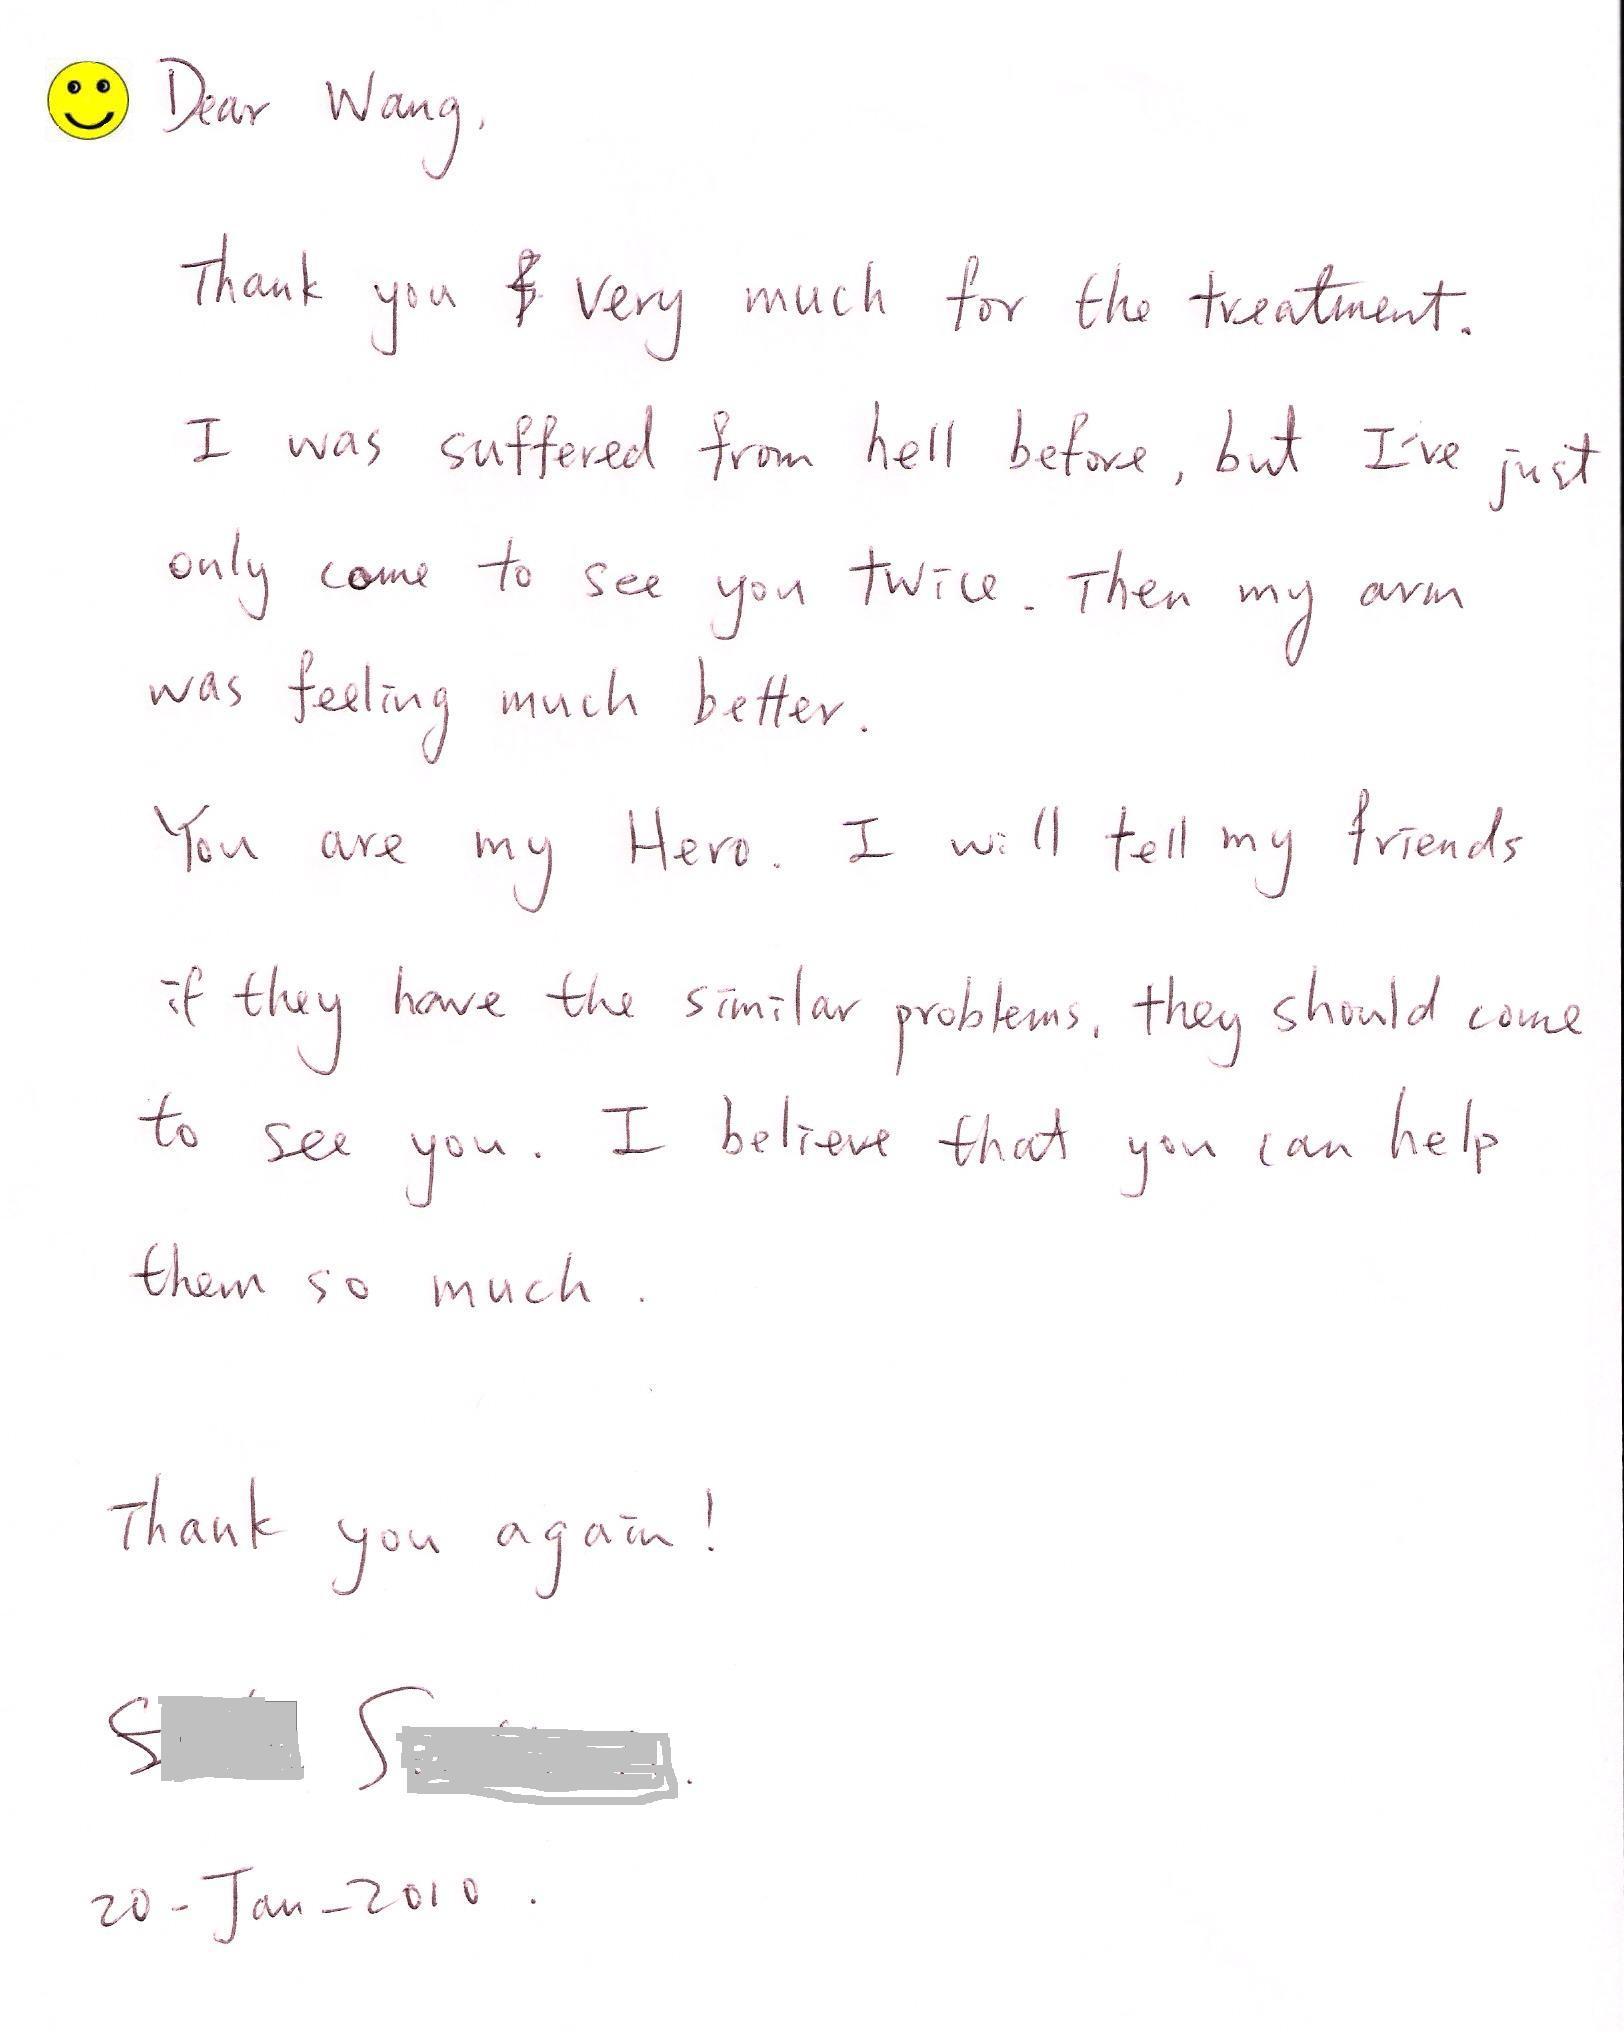 Dear Wang,
Thank you very much for the treatment.
I was suffered from hell before, but I've just
only come to see you twice. Then my arm
was feeling much better.
You are my Hero. I will tell my friends
if they have the similar problems, they should come
to see you. I believe that you can help
them so much.
Thank you again!
S S
20-Jan-2010.